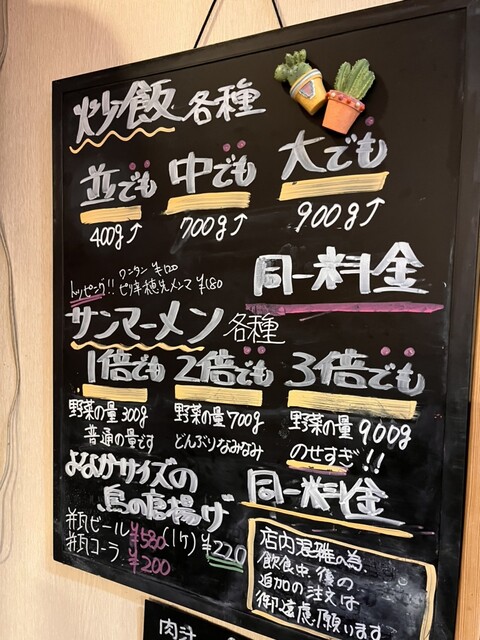 炒飯 各種
並でも 中でも 大でも
400g↑ 700g↑ 900g↑
ワンタン ¥120
トッピング!! ピリ辛穂先メンマ ¥180
同一料金
サンマーメン各種
1倍でも 2倍でも 3倍でも
野菜の量300g 野菜の量700g 野菜の量900g
普通の量です どんぶりなみなみ のせすぎ!!
同一料金
よなかサイズの
鳥の唐揚げ
(1ケ)¥220
瓶ビール ¥580
瓶コーラ ¥200
店内混雑の為
飲食中、後の
追加の注文は
御遠慮願います
肉汁